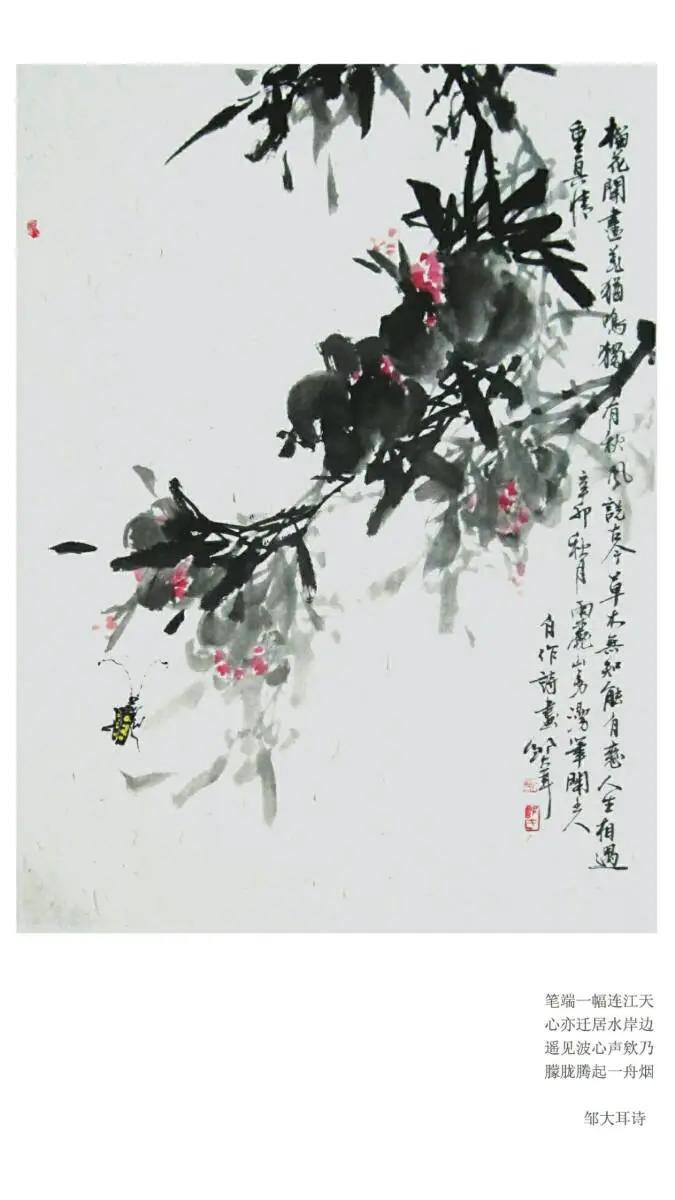 榴花開 猶鳴獨有秋風説古今草木無知能有意人生相遇
重真情
辛卯秋月雨麓山房 筆閑人
自作詩畫
笔端一幅连江天
心亦迁居水岸边
遥见波心声欸乃
朦胧腾起一舟烟
邹大耳诗